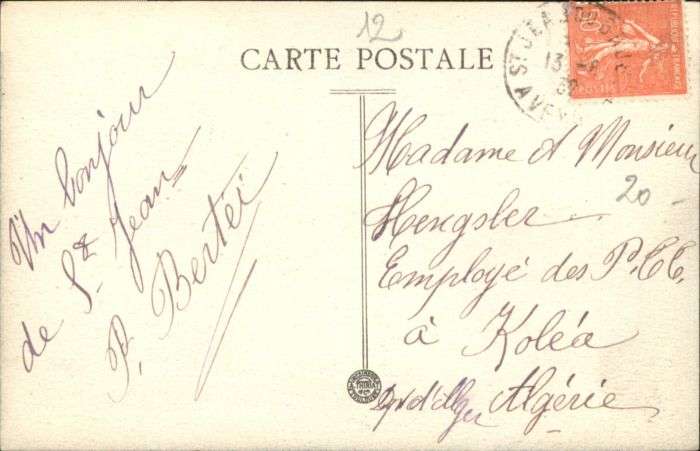 12
CARTE POSTALE
ST JEA
13
AVEY
Un bonjour
de St Jean
P. Bertei
Madame et Monsieur
20
Hengsler
Employé des P.T.T.
à Koléa
Algérie